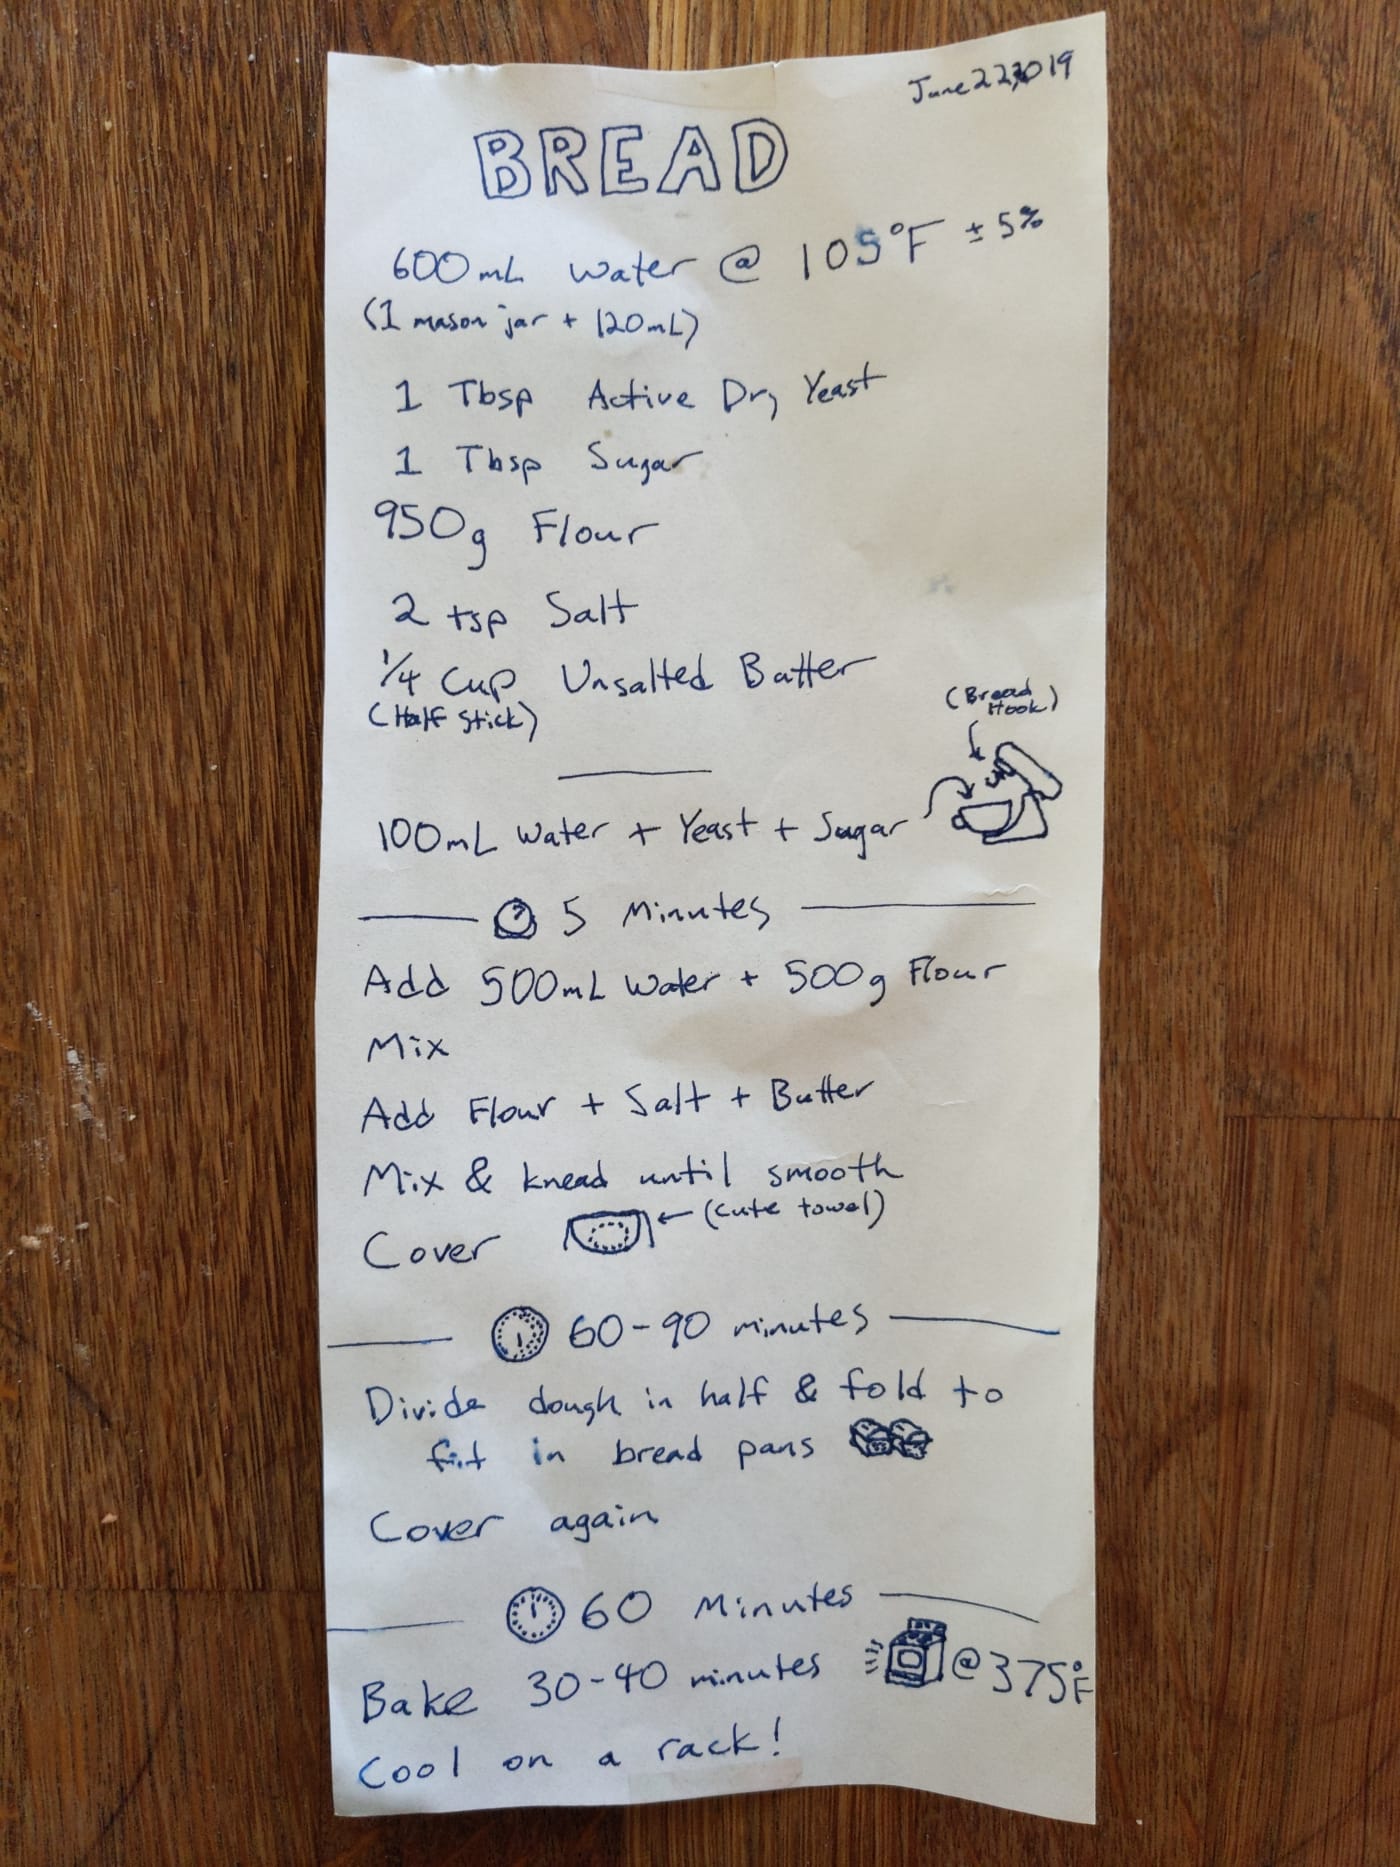 June 22, 2019
BREAD
600mL Water @ 105°F ± 5%
(1 mason jar + 120mL)
1 Tbsp Active Dry Yeast
1 Tbsp Sugar
950g Flour
2 tsp Salt
1/4 Cup Unsalted Butter
(Half Stick)
(Bread
Hook)
100mL Water + Yeast + Sugar
5 Minutes
Add 500mL Water + 500g Flour
Mix
Add Flour + Salt + Butter
Mix & knead until smooth
Cover
(cute towel)
60-90 minutes
Divide dough in half & fold to
fit in bread pans
Cover again
60 Minutes
Bake 30-40 minutes @ 375°F
Cool on a rack!